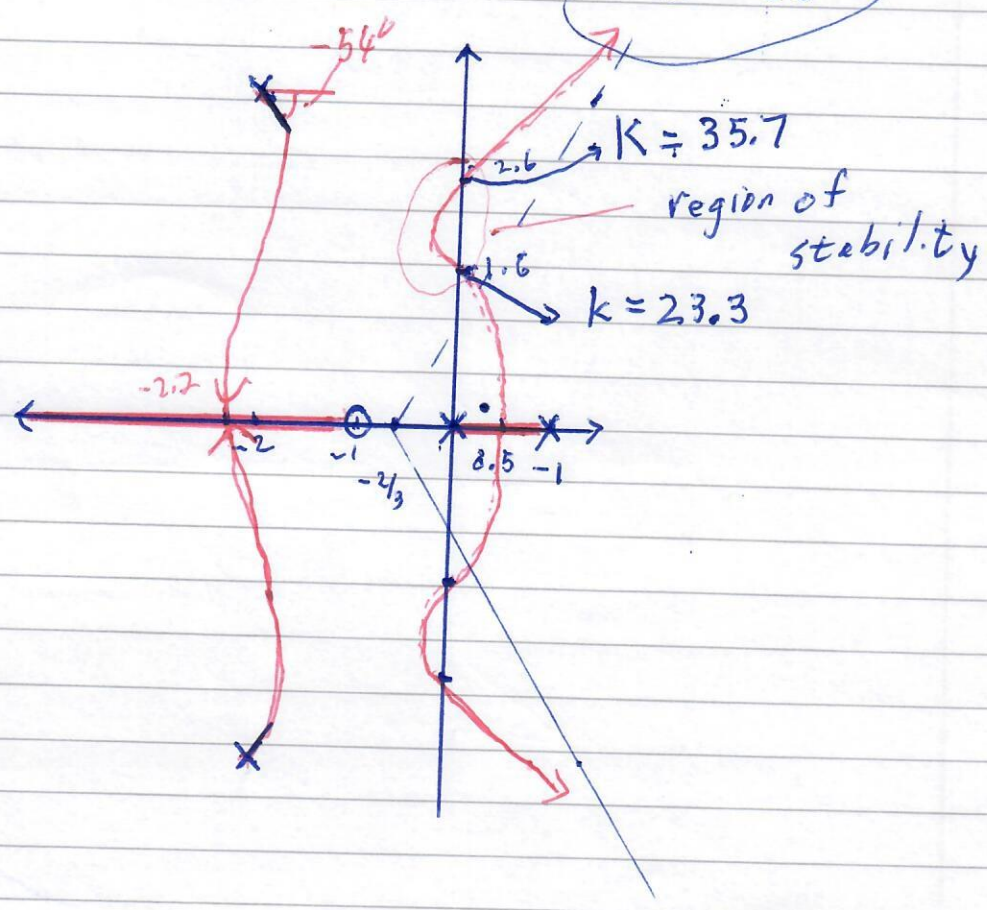 -54°
2.6
K = 35.7
region of
stability
1.6
k = 23.3
-2.2
-2
-1
-2/3
8.5
-1